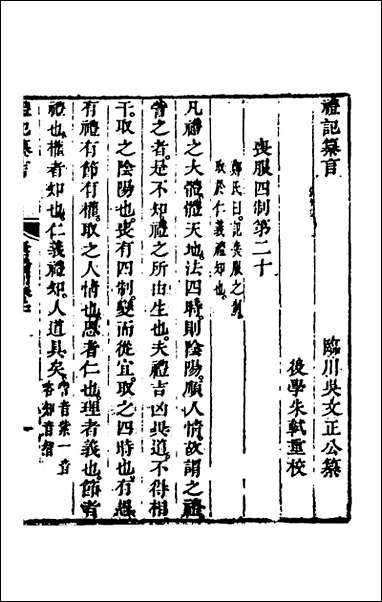 禮記纂言
臨川吳文正公纂
後學朱軾重校
喪服四制第二十
鄭氏曰記喪服之制
取於仁義禮知也
凡禮之大體體天地法四時則陰陽順人情故謂之禮
訾之者是不知禮之所由生也夫禮吉凶異道不得相
干取之陰陽也喪有四制變而從宜取之四時也有恩
有禮有節有權取之人情也恩者仁也理者義也節者
禮也權者知也仁義禮知人道具矣
禮記纂言
一